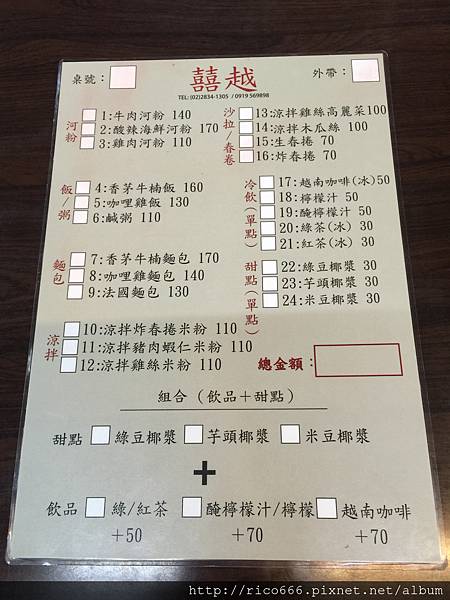 桌號：
囍越
外帶：
TEL: (02)2834-1305 / 0919 569898
河粉
1:牛肉河粉 140
2:酸辣海鮮河粉 170
3:雞肉河粉 110
飯/粥
4:香茅牛楠飯 160
5:咖哩雞飯 130
6:鹹粥 110
麵包
7:香茅牛楠麵包 170
8:咖哩雞麵包 140
9:法國麵包 130
涼拌
10:涼拌炸春捲米粉 110
11:涼拌豬肉蝦仁米粉 110
12:涼拌雞絲米粉 110
沙拉/春卷
13:涼拌雞絲高麗菜100
14:涼拌木瓜絲 100
15:生春捲 70
16:炸春捲 70
冷飲(單點)
17:越南咖啡(冰)50
18:檸檬汁 50
19:醃檸檬汁 50
20:綠茶(冰) 30
21:紅茶(冰) 30
甜點(單點)
22:綠豆椰漿 30
23:芋頭椰漿 30
24:米豆椰漿 30
總金額：
組合（飲品＋甜點）
甜點 綠豆椰漿 芋頭椰漿 米豆椰漿
+
飲品 綠/紅茶 醃檸檬汁/檸檬 越南咖啡
+50 +70 +70
http://rico666.pixnet.net/album